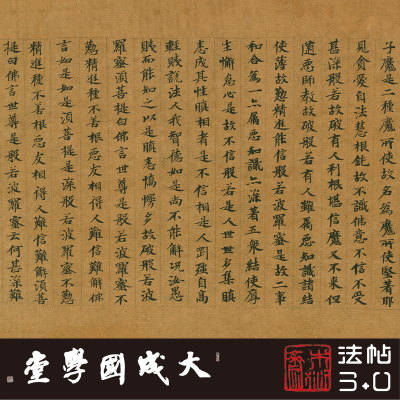 子魔是二種魔所使故名為魔所使堅著邪
見貪愛自法慧根鈍故不識佛意不信不受
甚深般若故破有人利根堪信魔又不來但
隨惡師教故破般若有人雖屬惡知識諸結
使薄故懃精進能信般若波羅蜜是故二事
和合為一六屬惡知識二深著五眾結使厚
生懈怠心是故不信般若是人世世多集瞋
恚成其性瞋相者是不信相是人剛強自高
輕賤說法人我智德如是尚不能解況汝愚
賤而能知之以是瞋恚憍慢多故破般若波
羅蜜須菩提白佛言世尊是般若波羅蜜不
懃精進種不善根惡友相得人難信難解佛
言如是如是須菩提是深般若波羅蜜不懃
精進種不善根惡友相得人難信難解須菩
提白佛言世尊是般若波羅蜜云何甚深難
大成國學堂
法帖
3.0